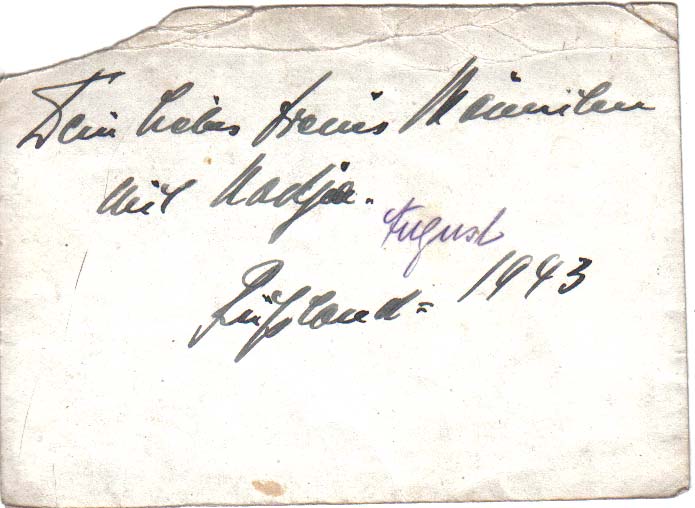 Dein liebes treues Männchen
mit Nadja.
August
Rußland = 1943